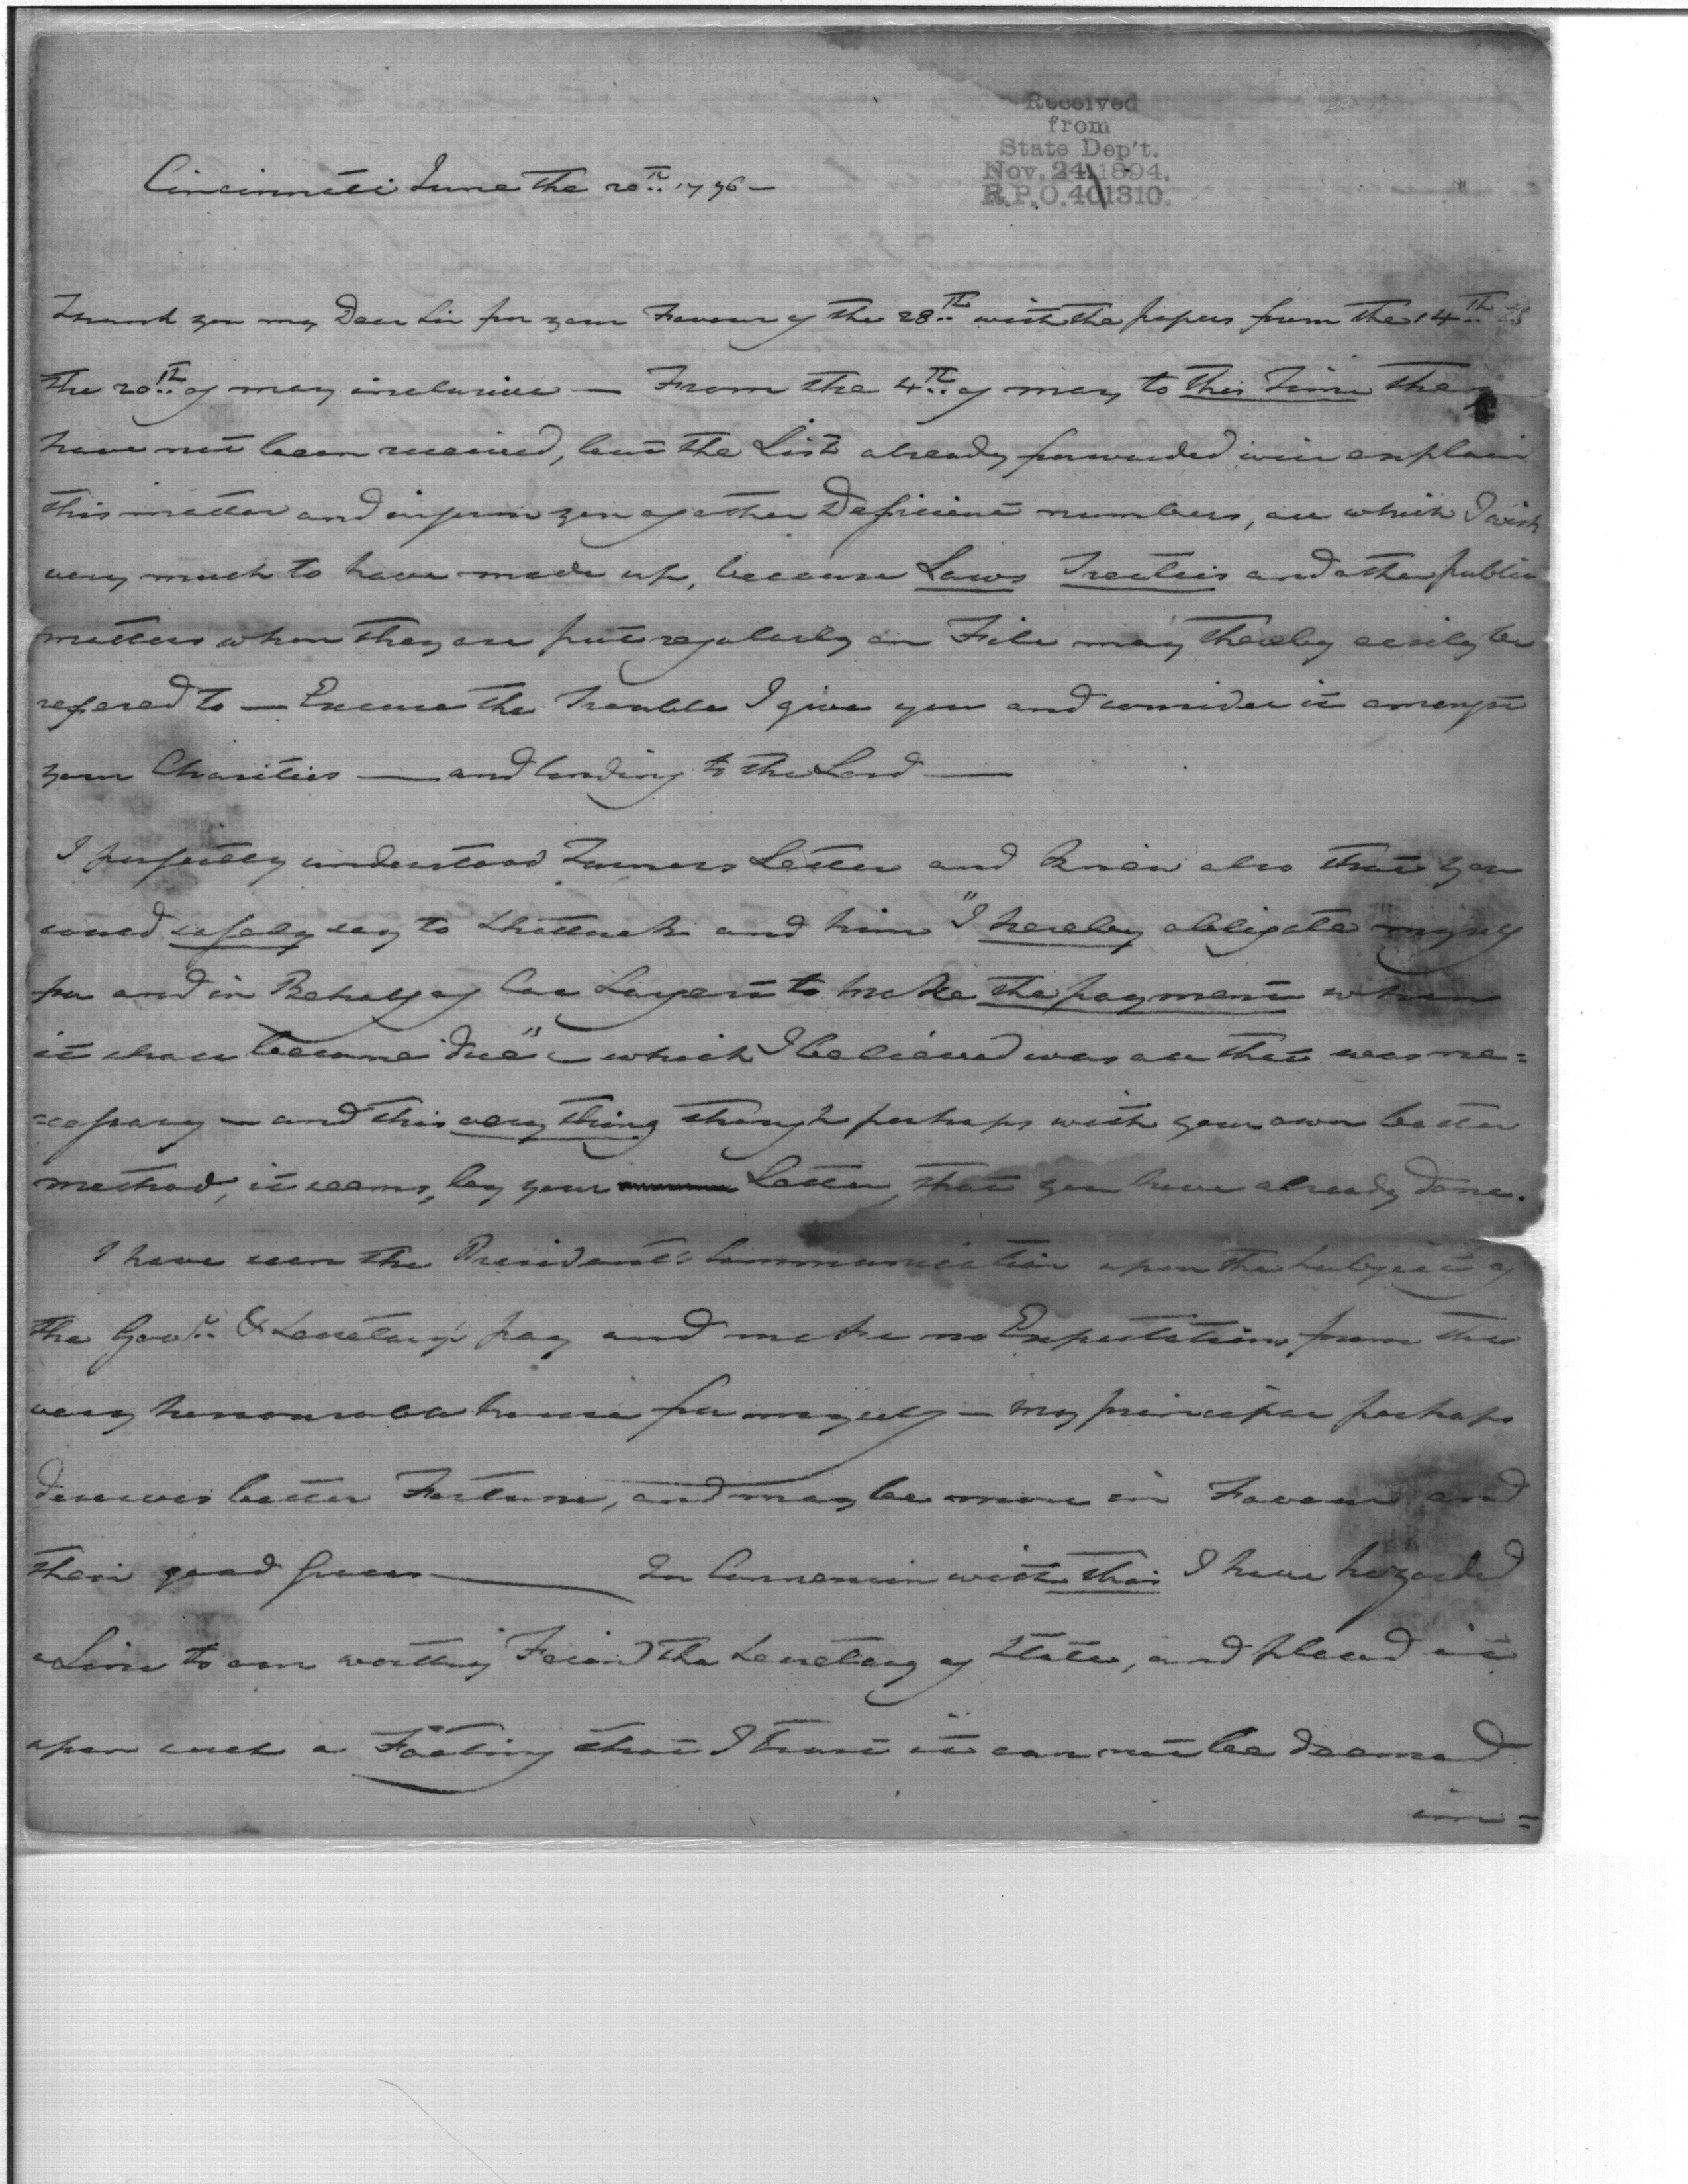 Received
from
State Dep't.
Nov. 24, 1894.
R.P.O. 401310.
Cincinnati June the 20th.. 1796 —
Thank you my Dear Sir for your Favour of the 28th.. with the papers from the 14th.. to
the 20th.. of may inclusive — From the 4th.. of may to this Time they
have not been received, but the List already forwarded will explain
this matter and inform you of other Deficient numbers, all which I wish
very much to have made up, because Laws Treaties and other public
matters when they are put regularly on File may thereby easily be
refered to — Excuse the Trouble I give you and consider it amongst
your Charities — and lending to the Lord —
I perfectly understood Turners Letter and knew also that you
could safely say to Shattuck and him "I hereby obligate myself
for and in Behalf of Sargent to make the payment when
it shall become due" — which I believed was all that was ne=
=cessary — and this very thing though perhaps with your own better
method, it seems, by your Letter, that you have already done.
I have seen the President's Communication upon the Subject of
the Govr.. & Secretary's pay and make no Expectations from the
very honourable house for myself — my principal perhaps
deserves better Fortune, and may be more in Favour and
their good graces — In Connexion with this I have hazarded
a Line to our worthy Friend the Secretary of State, and placed it
upon such a Footing that I trust it can not be deemed
im=